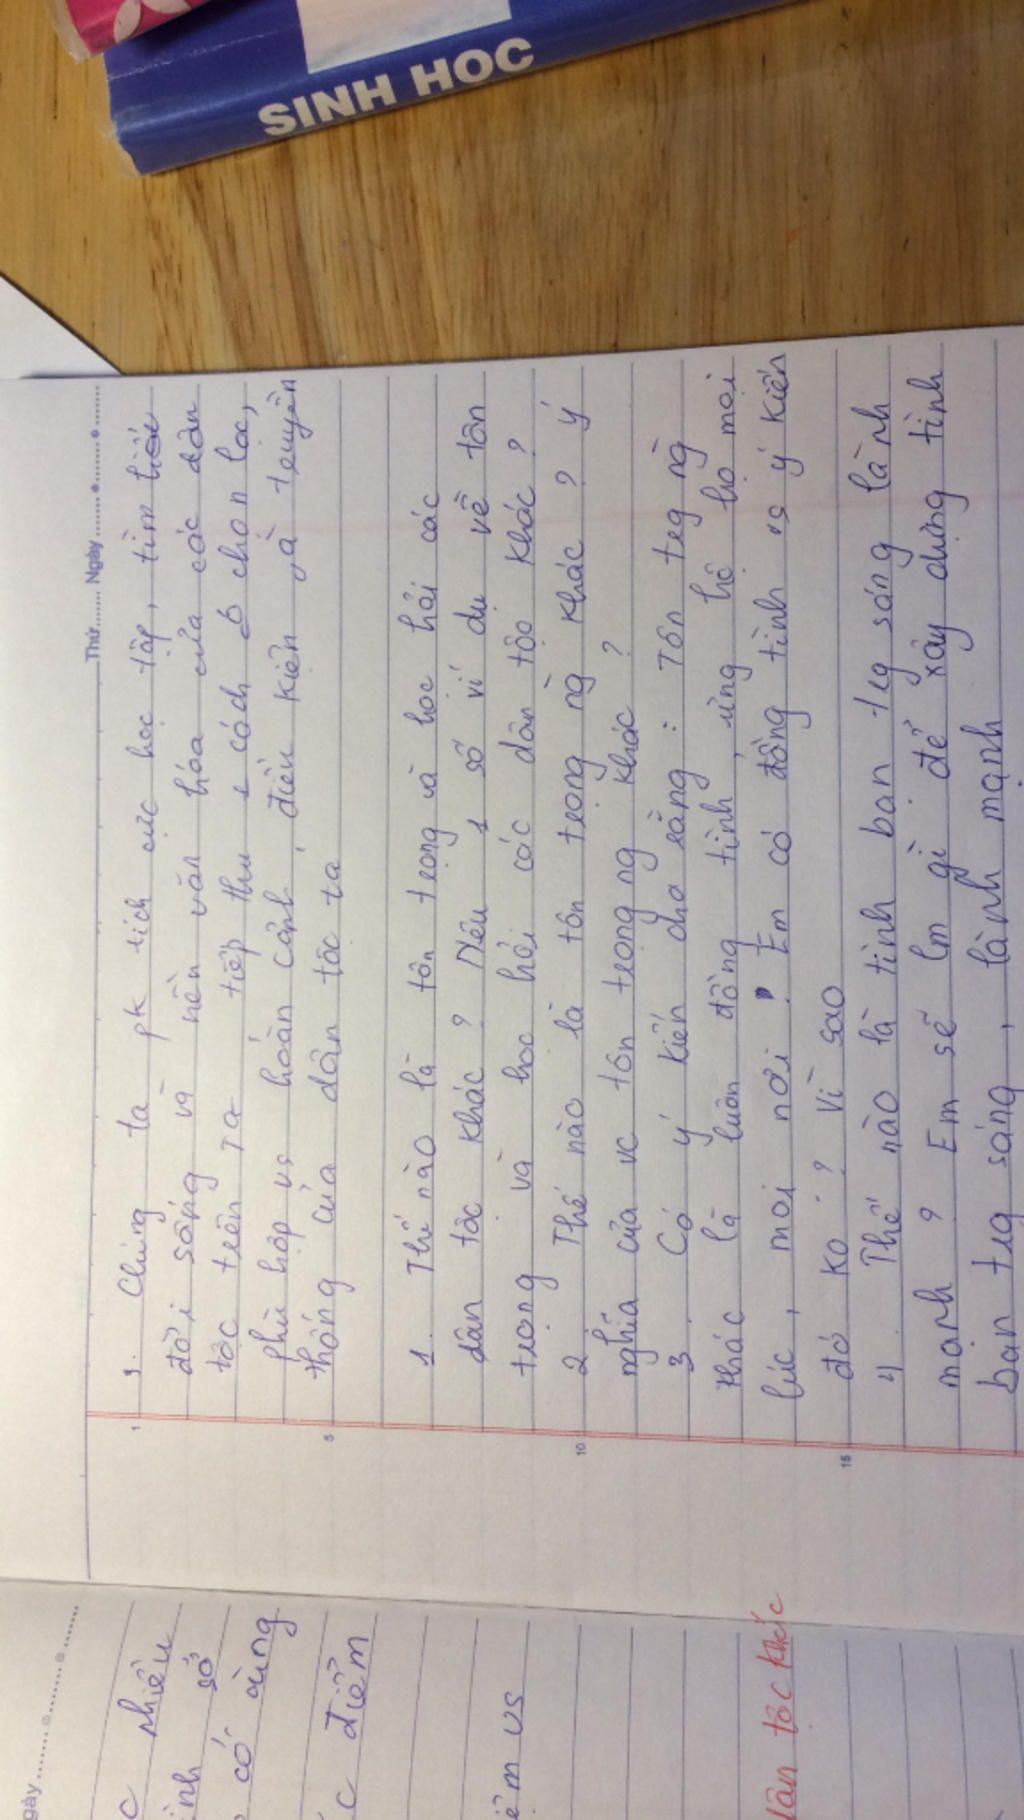 SINH HỌC
Thứ....... Ngày........................
3. Chúng ta pk tích cực học tập, tìm hiểu
đời sống và nền văn hóa của các dân
tộc trên TG tiếp thu 1 cách có chọn lọc,
phù hợp vs hoàn cảnh, điều kiện và truyền
thống của dân tộc ta
1. Thế nào là tôn trọng và học hỏi các
dân tộc khác? Nêu 1 số ví dụ về tôn
trọng và học hỏi các dân tộc khác?
2 Thế nào là tôn trọng ng khác? ý
nghĩa của vc tôn trọng ng khác?
3. Có ý kiến cho rằng: Tôn trọg ng
khác là luôn đồng tình, ủng hộ họ mọi
lúc, mọi nơi. Em có đồng tình vs ý kiến
đó ko? Vì sao
4. Thế nào là tình bạn trg sáng lành
mạnh? Em sẽ lm gì để xây dựng tình
bạn trg sáng, lành mạnh
1
5
10
15
gày
c nhiều
ình sở
có cùng
c điểm
ểm vs
dân tộc khác